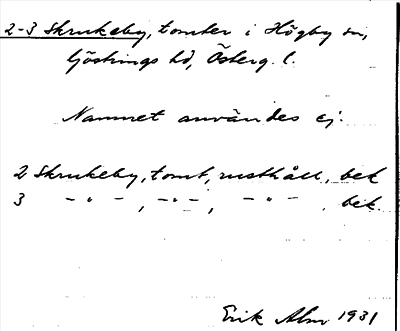 2-3 Skrukeby, tomter i Högby sn,
Göstrings hd, Österg. l.
Namnet användes ej.
2 Skrukeby, tomt, rusthåll, bek
3 -"- , -"- , -"- . bek.
Erik Alm 1931